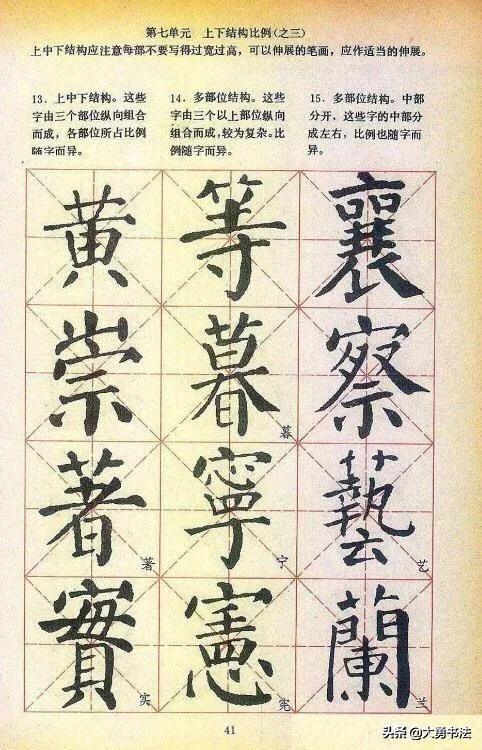 第七单元 上下结构比例(之三)
上中下结构应注意每部不要写得过宽过高，可以伸展的笔画，应作适当的伸展。
13．上中下结构。这些
字由三个部位纵向组合
而成，各部位所占比例
随字而异。
14．多部位结构。这些
字由三个以上部位纵向
组合而成，较为复杂。比
例随字而异。
15．多部位结构。中部
分开，这些字的中部分
成左右，比例也随字而
异。
黄 等 襄
崇 暮 察
暮
著 寧 藝
著 宁 艺
實 憲 蘭
实 宪 兰
41
头条 @大勇书法